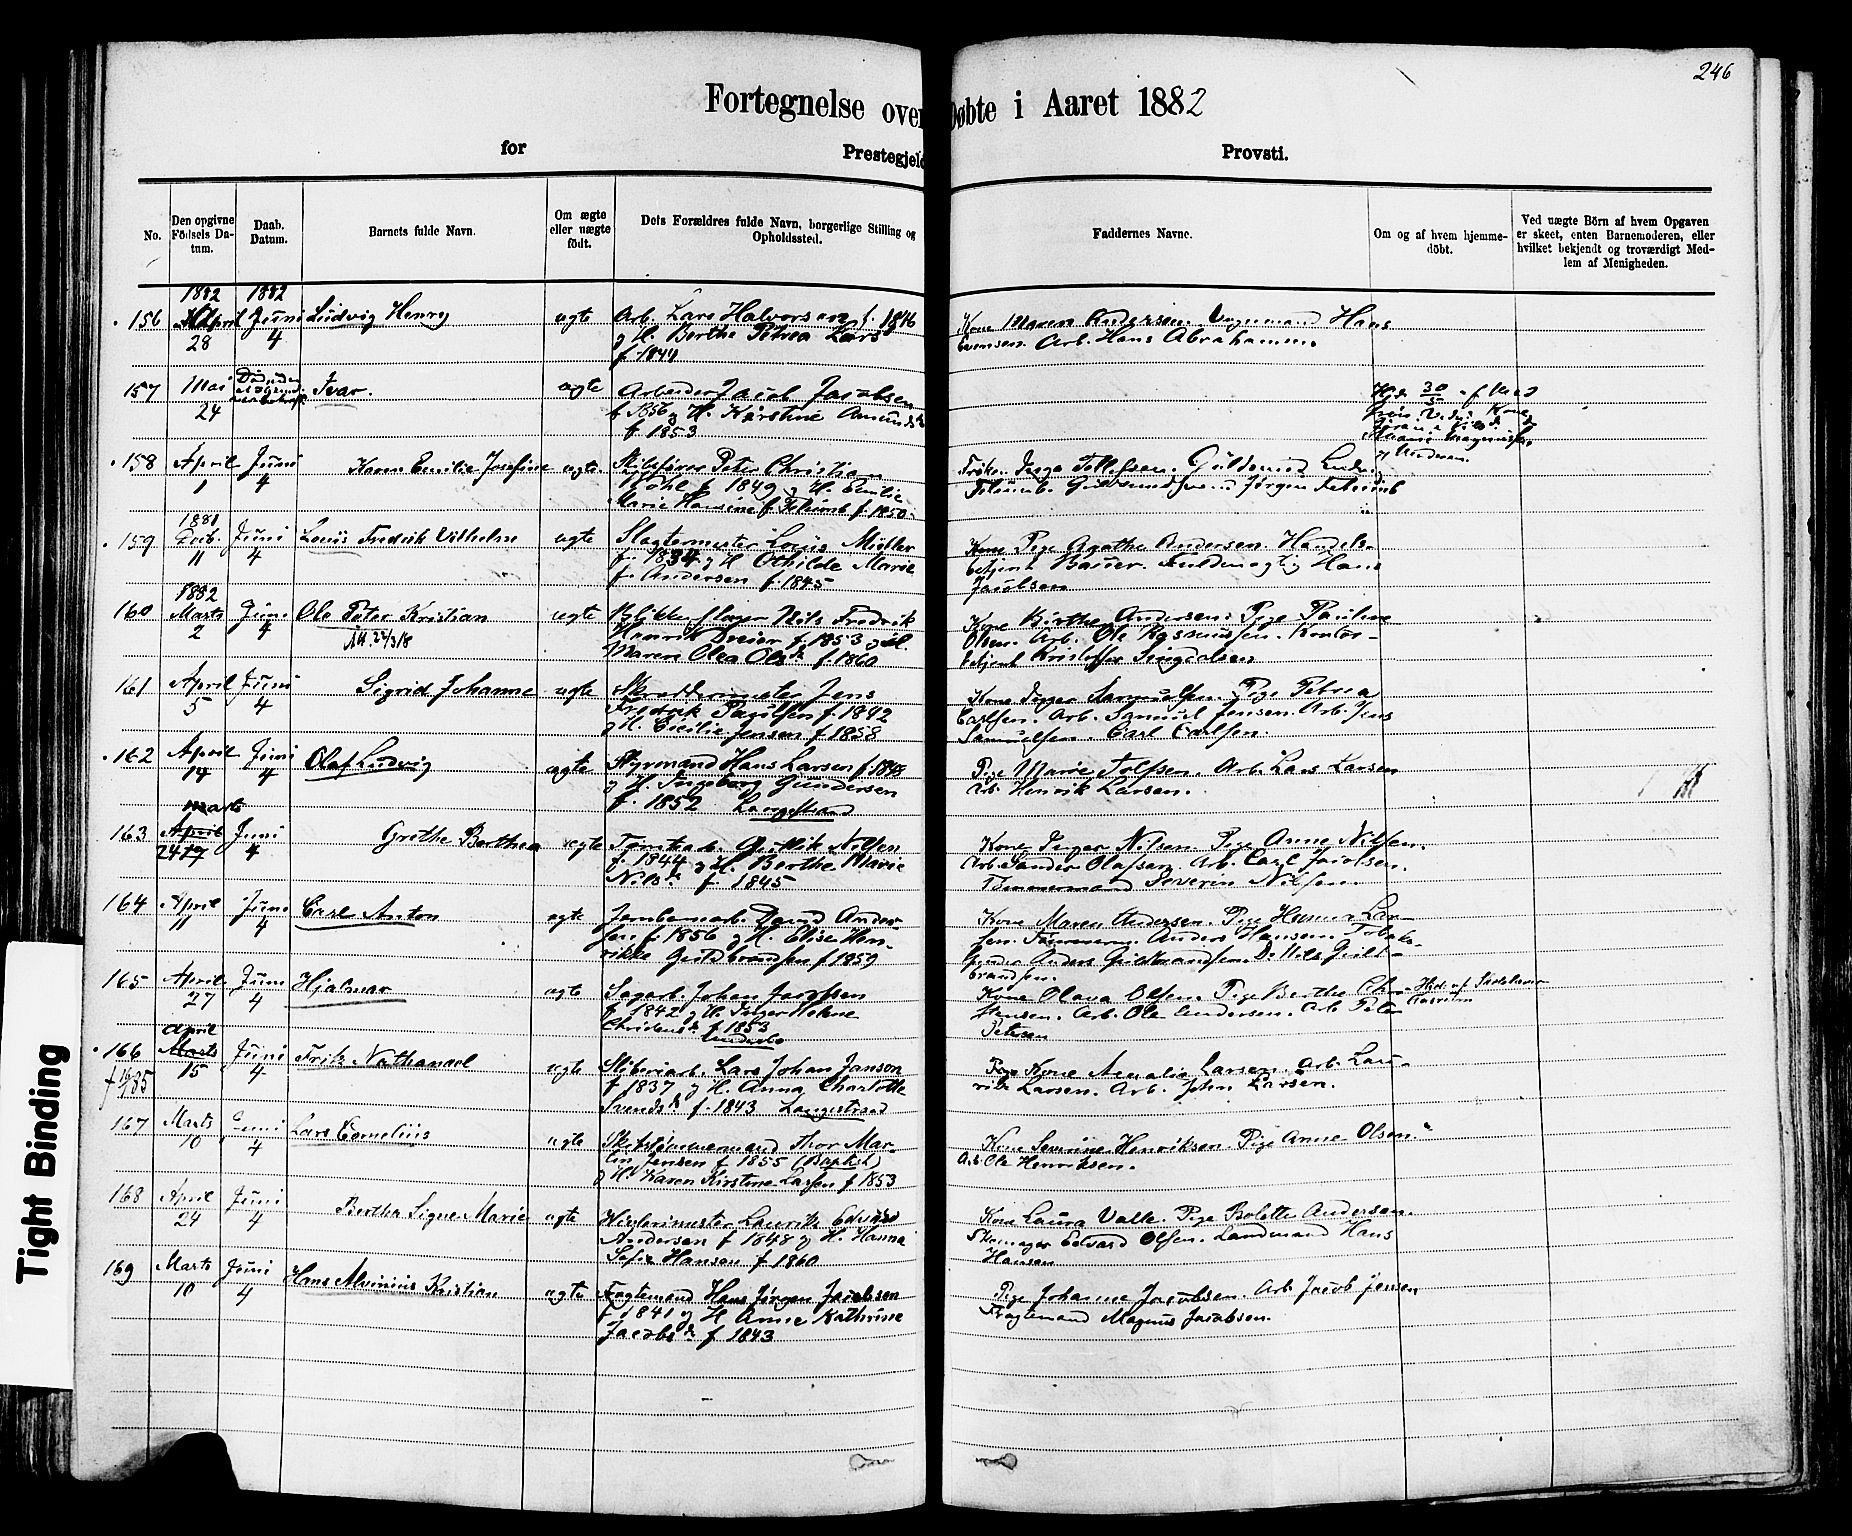 246
Fortegnelse over Døbte i Aaret 1882
for Prestegjeld Provsti.
No.
Den opgivne Födsels Datum.
Daab. Datum.
Barnets fulde Navn.
Om ægte eller uægte födt.
Dets Forældres fulde Navn, borgerlige Stilling og Opholdssted.
Faddernes Navne.
Om og af hvem hjemmedöbt.
Ved uægte Börn af hvem Opgaven er skeet, enten Barnemoderen, eller hvilket bekjendt og troværdigt Medlem af Menigheden.
1882 1882
156 April 28 Juni 4 Ludvig Henry ægte Arb. Lars Halvorsen f. 1846
og H. Berthe Petrea Lars
f 1844
Kone Maren Andersen. Hans
Evensen. Arb. Hans Abrahamsen.
157 Mai 24 Ivar. ægte Arbeider Jacob Jacobsen
f 1856 og H. Kirstine Amunds
f 1853
Hjd. 30/5 af
158 April 1 Juni 4 Karen Emilie Josefine ægte Skibsfører Peter Christian
f 1849 og H. Emilie
Marie Hansine f.
Frøken Inga Tollefsen. Guldsmed Ludvig
Jørgen
1881
159 Decb. 11 Juni 4 Louis Fredrik Vilhelm ægte Slagtermester Louis Midler
f. 1834 og H Othilde Marie
f. Andersen f. 1845
Kone Pige Agathe Andersen Handels-
betjent Bauer. Fuldmægtig Hans
Jacobsen
1882
160 Marts 2 Juni 4 Ole Peter Kristian ægte Blikkenslager Nils Fredrik
Henrik Dreier f. 1853 og H.
Maren Olea Ols f. 1860
Kone Birthe Andersen. Pige Pauline
Olsen. Arb. Ole Rasmussen. Kontor-
betjent Kristoffer
161 April 5 Juni 4 Sigrid Johanne ægte Skreddermester Jens
Fredrik Paulsen f. 1842
og H. Cicilie Jensen f 1858
Kone Inger Samuelsen. Pige Petrea
Carlsen. Arb. Samuel Jensen. Arb. Jens
Samuelsen. Carl Carlsen.
162 April 14 Juni 4 Olaf Ludvig ægte Styrmand Hans Larsen f. 1848
og H. Ingeborg Gundersen
f. 1852 Langestrand
Pige Marie Tolfsen. Arb. Lars Larsen
Arb. Henrik Larsen.
163 Marts April 24 17 Juni 4 Grethe Berthea ægte Tomtearb. Gullik Nilsen
f. 1844 og H. Berthe Marie
Nils f. 1845
Kone Inger Nilsen. Pige Anne Nilsen.
Arb. Sander Olafsen. Arb. Carl Jacobsen.
Tømmermand Severin Nilsen.
164 April 11 Juni 4 Carl Anton ægte Jernbanearb. David Ander-
sen f. 1856 og H. Elise Hen-
rikke Guldbrandsen f 1859
Kone Maren Andersen. Pige Hanna Lar-
sen. Tømmerm. Anders Hansen. Tobaks-
Anders Guldbrandsen. Do Nils Guld-
brandsen.
165 April 27 Juni 4 Hjalmar ægte Sagarb. Johan Jacobsen
f 1842 og H. Inger Helene
f 1853
Kone Olava Olsen. Pige Berthe Chri-
stensen. Arb. Ole Andersen. Arb Peter
Petersen
Hjd. af
166 April Marts 15 Juni 4 Fritz Nathanael ægte Støberiarb. Lars Johan Janson
f 1837 og H. Anna Charlotte
Svends f. 1843 Langestrand
Pige Kone Amalie Larsen. Arb. Lau-
rits Larsen. Arb. John Larsen.
167 Marts 10 Juni 4 Lars Cornelius ægte Skibstømmermand Thor Mar-
tin Jensen f 1855 (Baptist)
og H. Karen Kirstine Larsen f 1853
Kone Severine Henriksen. Pige Anne Olsen.
Arb Ole Henriksen.
168 April 24 Juni 4 Bertha Signe Marie ægte Laurits Edvard
Andersen f 1848 og H. Hanna
Sofie Hansen f 1860
Kone Laura Valle. Pige Bolette Andersen.
Skomager Edvard Olsen. Landmand Hans
Hansen
169 Marts 10 Juni 4 Hans Alvinius Kristian ægte Fragtemand Hans Jørgen Jacobsen
f 1841 og H Anne Kathrine
Jacobs f 1843
Pige Johanne Jacobsen. Arb Jacob Jensen
Fragtemand Magnus Jacobsen.
Tight Binding